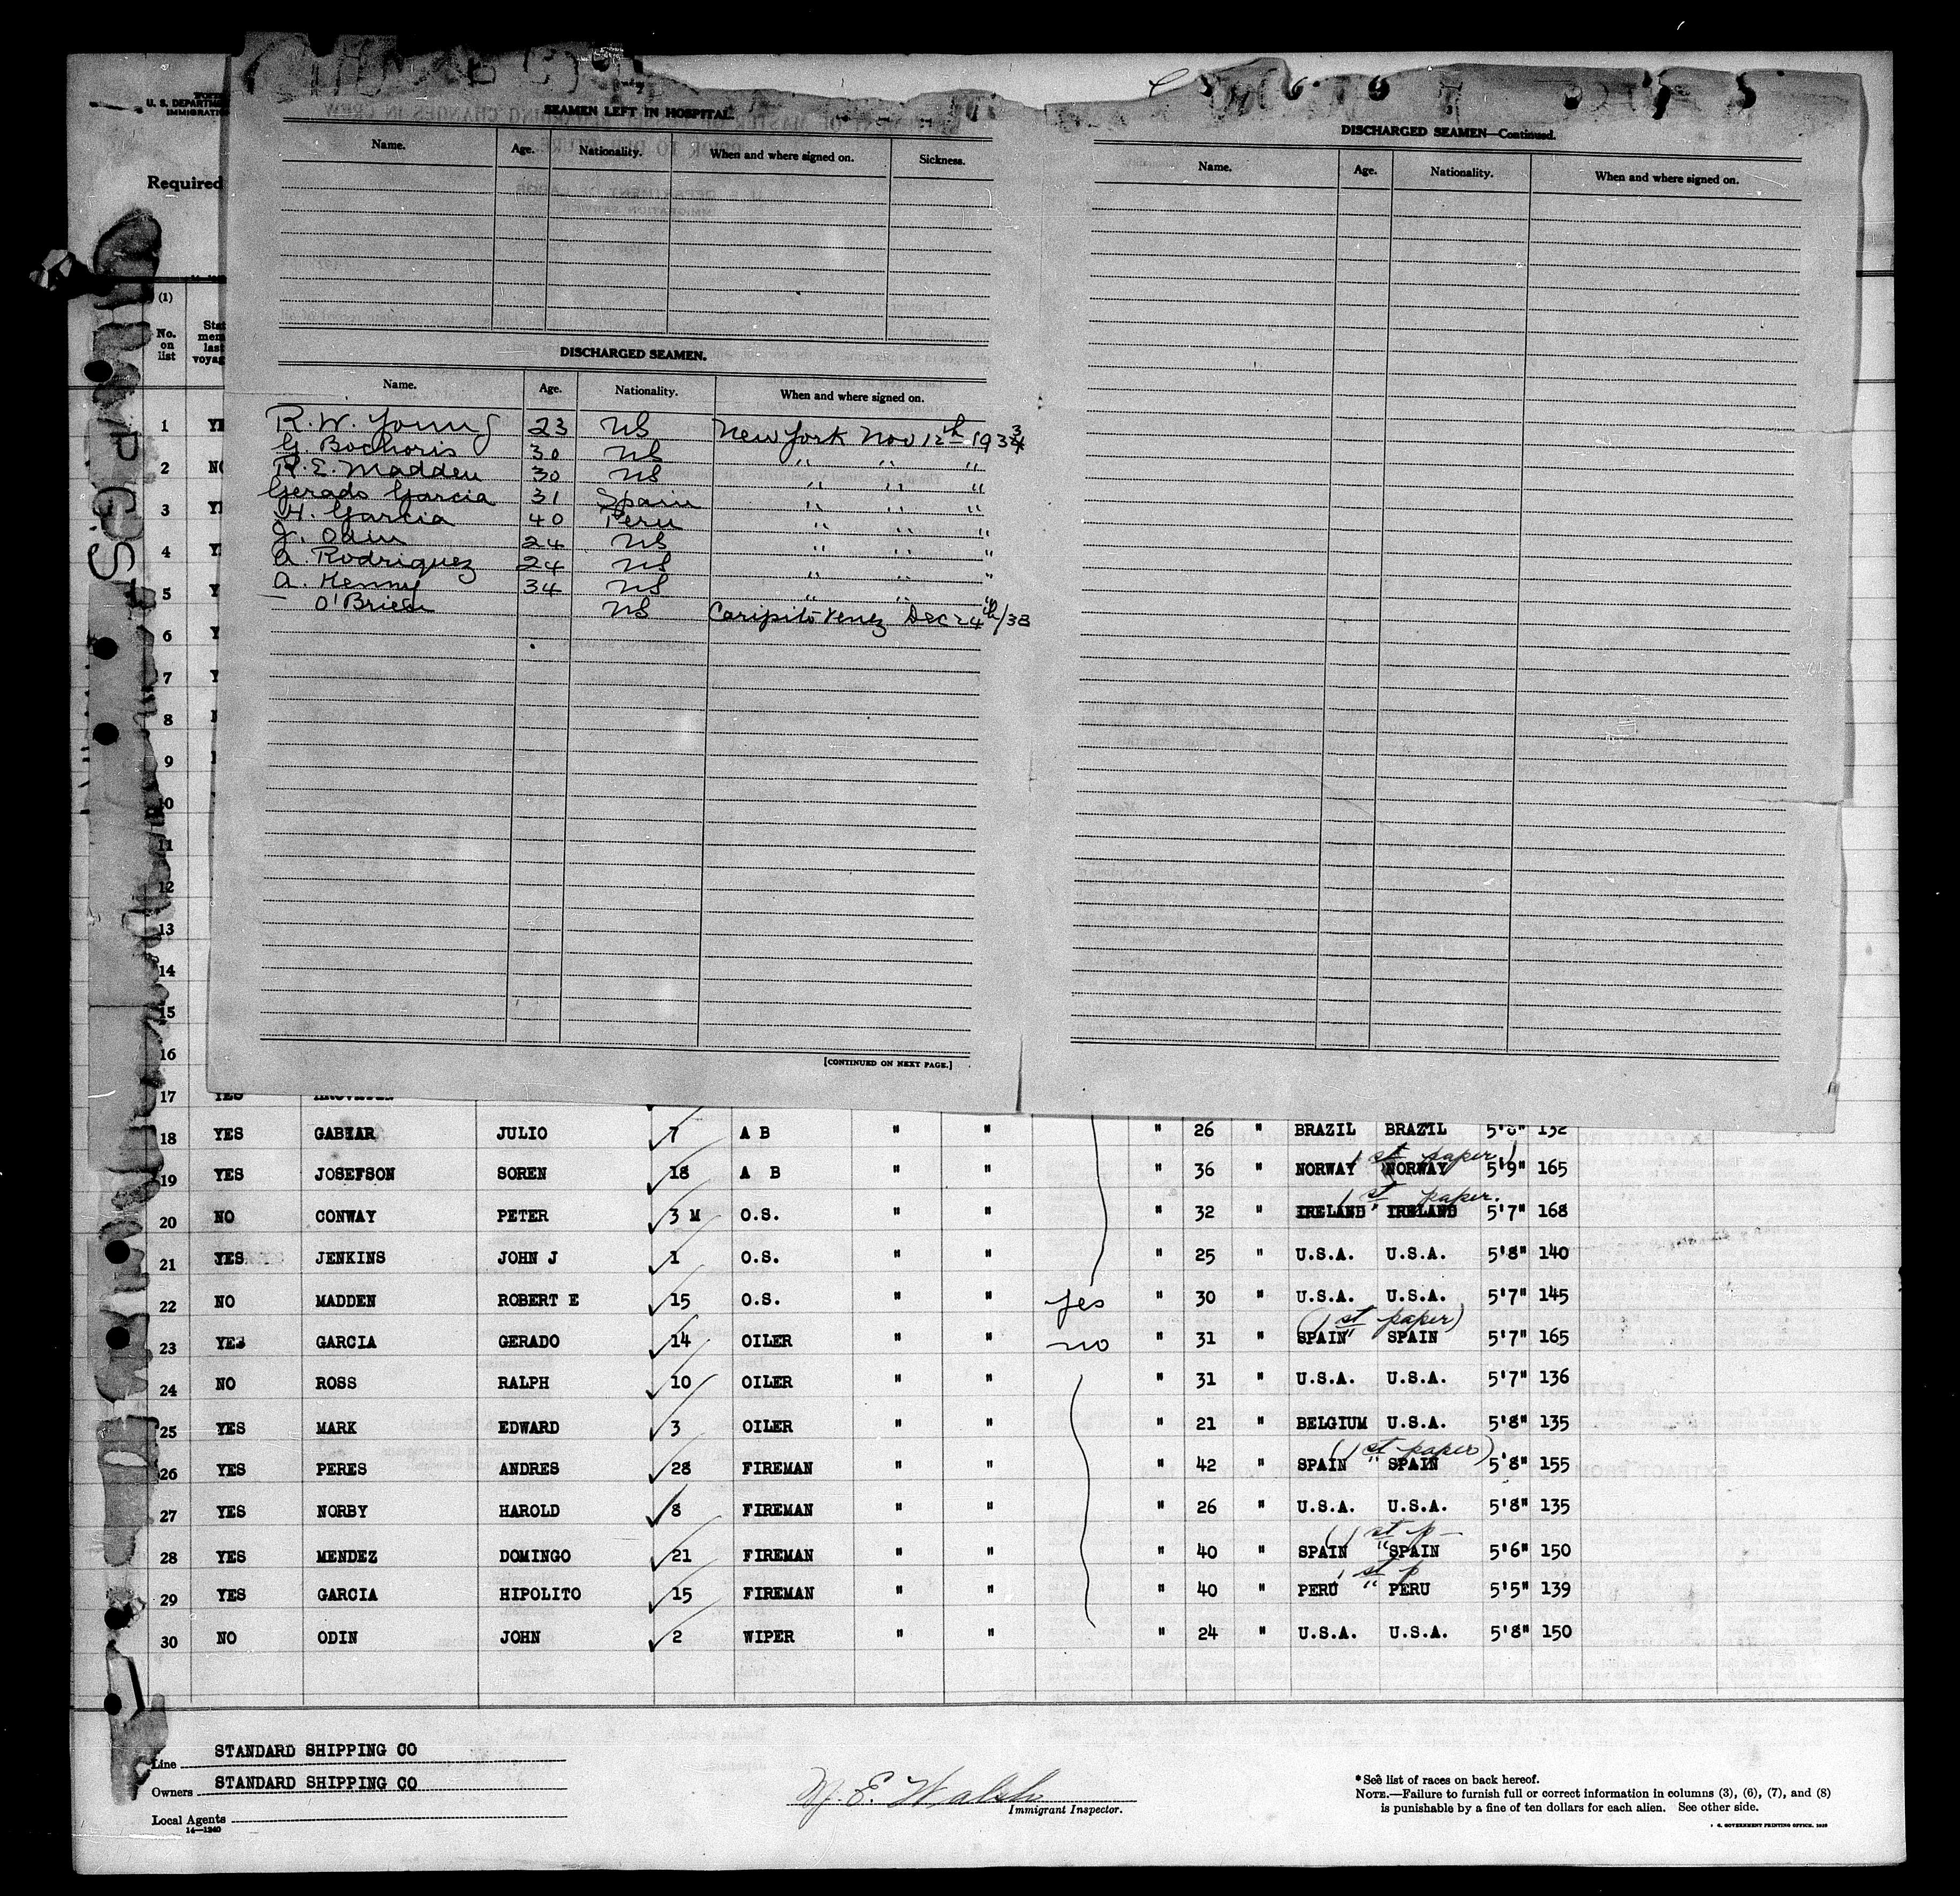 U. S. DEPARTM
IMMIGRATI
Required
SEAMEN LEFT IN HOSPITAL.
Name. Age. Nationality. When and where signed on. Sickness.
DISCHARGED SEAMEN.
Name. Age. Nationality. When and where signed on.
R. W. Young 23 US New York Nov 12th 193
G. Bochoris 30 US " " "
R. E. Madden 30 US " " "
Gerado Garcia 31 Spain " " "
H. Garcia 40 Peru " " "
J. Odin 24 US " " "
A. Rodriquez 24 US " " "
A. Kenny 34 US " " "
— O'Brien US Caripito Venez Dec 24th/38
[CONTINUED ON NEXT PAGE.]
DISCHARGED SEAMEN—Continued.
Name. Age. Nationality. When and where signed on.
(1)
No. on list
Stat
men
last
voyag
1 YE
2 NO
3 YE
4 Y
5 Y
6 Y
7 Y
8
9
10
11
12
13
14
15
16
17 YES
18 YES GABIAR JULIO 7 A B " " " 26 " BRAZIL BRAZIL 5'8" 132
1st paper)
19 YES JOSEFSON SOREN 18 A B " " " 36 " NORWAY NORWAY 5'9" 165
1st paper.
20 NO CONWAY PETER 3 M O.S. " " " 32 " IRELAND " IRELAND 5'7" 168
21 YES JENKINS JOHN J 1 O.S. " " " 25 " U.S.A. U.S.A. 5'8" 140
22 NO MADDEN ROBERT E 15 O.S. " " yes " 30 " U.S.A. U.S.A. 5'7" 145
(1st paper)
23 YES GARCIA GERADO 14 OILER " " no " 31 " SPAIN " SPAIN 5'7" 165
24 NO ROSS RALPH 10 OILER " " " 31 " U.S.A. U.S.A. 5'7" 136
25 YES MARK EDWARD 3 OILER " " " 21 " BELGIUM U.S.A. 5'8" 135
(1st paper)
26 YES PERES ANDRES 28 FIREMAN " " " 42 " SPAIN " SPAIN 5'8" 155
27 YES NORBY HAROLD 8 FIREMAN " " " 26 " U.S.A. U.S.A. 5'8" 135
(1st p—
28 YES MENDEZ DOMINGO 21 FIREMAN " " " 40 " SPAIN " SPAIN 5'6" 150
1st p
29 YES GARCIA HIPOLITO 15 FIREMAN " " " 40 " PERU " PERU 5'5" 139
30 NO ODIN JOHN 2 WIPER " " " 24 " U.S.A. U.S.A. 5'8" 150
Line STANDARD SHIPPING CO
Owners STANDARD SHIPPING CO
Local Agents
14—1240
Walsh
Immigrant Inspector.
*See list of races on back hereof.
NOTE.—Failure to furnish full or correct information in columns (3), (6), (7), and (8)
is punishable by a fine of ten dollars for each alien. See other side.
GOVERNMENT PRINTING OFFICE